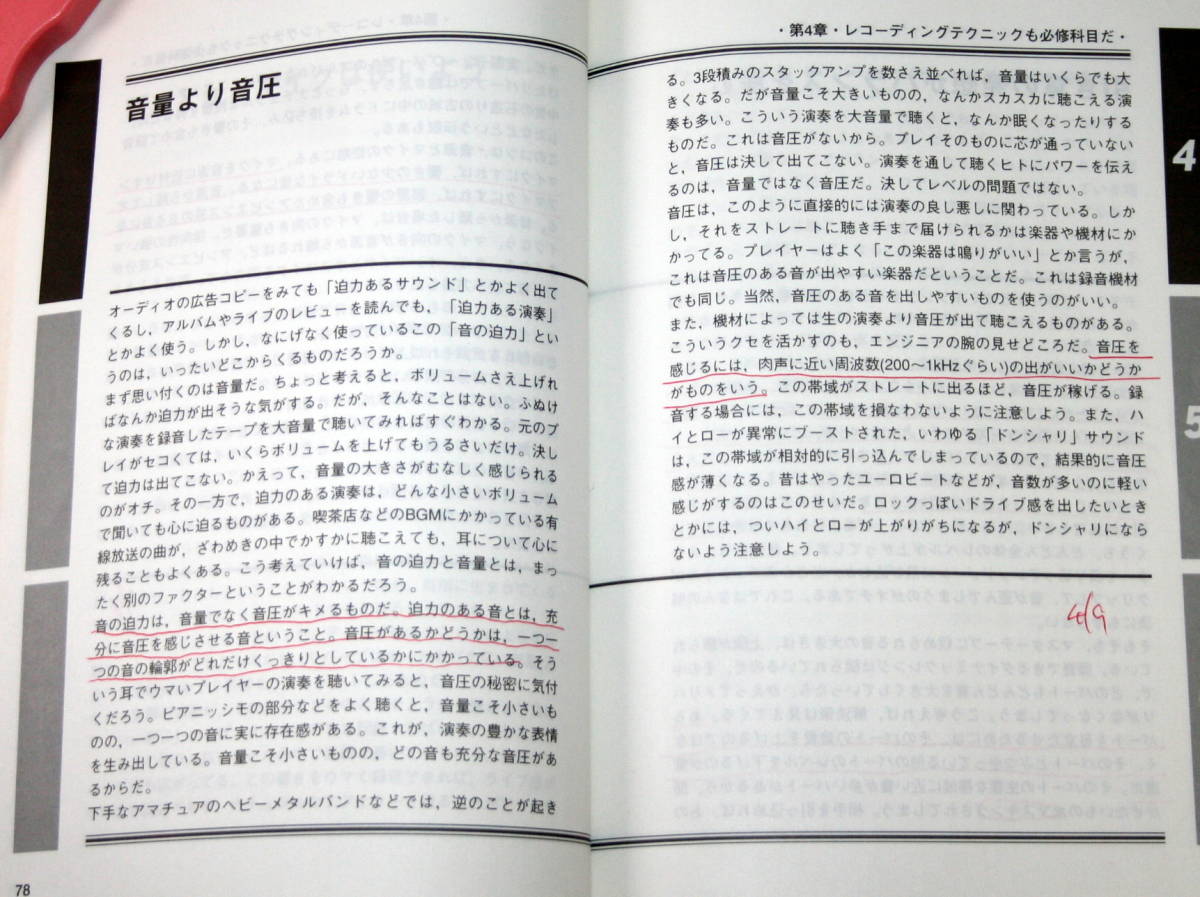 音量より音圧
オーディオの広告コピーをみても「迫力あるサウンド」とかよく出て
くるし，アルバムやライブのレビューを読んでも，「迫力ある演奏」
とかよく使う。しかし，なにげなく使っているこの「音の迫力」とい
うのは，いったいどこからくるものだろうか。
まず思い付くのは音量だ。ちょっと考えると，ボリュームさえ上げれ
ばなんか迫力が出そうな気がする。だが，そんなことはない。ふぬけ
な演奏を録音したテープを大音量で聴いてみればすぐわかる。元のプ
レイがセコくては，いくらボリュームを上げてもうるさいだけ。決し
て迫力は出てこない。かえって，音量の大きさがむなしく感じられる
のがオチ。その一方で，迫力のある演奏は，どんな小さいボリューム
で聞いても心に迫るものがある。喫茶店などのBGMにかかっている有
線放送の曲が，ざわめきの中でかすかに聴こえても，耳について心に
残ることもよくある。こう考えていけば，音の迫力と音量とは，まっ
たく別のファクターということがわかるだろう。
音の迫力は，音量でなく音圧がキメるものだ。迫力のある音とは，充
分に音圧を感じさせる音ということ。音圧があるかどうかは，一つ一
つの音の輪郭がどれだけくっきりとしているかにかかっている。そう
いう耳でウマいプレイヤーの演奏を聴いてみると，音圧の秘密に気付
くだろう。ピアニッシモの部分などをよく聴くと，音量こそ小さいも
のの，一つ一つの音に実に存在感がある。これが，演奏の豊かな表情
を生み出している。音量こそ小さいものの，どの音も充分な音圧があ
るからだ。
下手なアマチュアのヘビーメタルバンドなどでは，逆のことが起き
78
・第4章・レコーディングテクニックも必修科目だ・
る。3段積みのスタックアンプを数さえ並べれば，音量はいくらでも大
きくなる。だが音量こそ大きいものの，なんかスカスカに聴こえる演
奏も多い。こういう演奏を大音量で聴くと，なんか眠くなったりする
ものだ。これは音圧がないから。プレイそのものに芯が通っていない
と，音圧は決して出てこない。演奏を通して聴くヒトにパワーを伝え
るのは，音量ではなく音圧だ。決してレベルの問題ではない。
音圧は，このように直接的には演奏の良し悪しに関わっている。しか
し，それをストレートに聴き手まで届けられるかは楽器や機材にか
かってる。プレイヤーはよく「この楽器は鳴りがいい」とか言うが，
これは音圧のある音が出やすい楽器だということだ。これは録音機材
でも同じ。当然，音圧のある音を出しやすいものを使うのがいい。
また，機材によっては生の演奏より音圧が出て聴こえるものがある。
こういうクセを活かすのも，エンジニアの腕の見せどころだ。音圧を
感じるには，肉声に近い周波数(200〜1kHzぐらい)の出がいいかどうか
がものをいう。この帯域がストレートに出るほど，音圧が稼げる。録
音する場合には，この帯域を損なわないように注意しよう。また，ハ
イとローが異常にブーストされた，いわゆる「ドンシャリ」サウンド
は，この帯域が相対的に引っ込んでしまっているので，結果的に音圧
感が薄くなる。昔はやったユーロビートなどが，音数が多いのに軽い
感じがするのはこのせいだ。ロックっぽいドライブ感を出したいとき
とかには，ついハイとローが上がりがちになるが，ドンシャリになら
ないよう注意しよう。
4/9
4
5